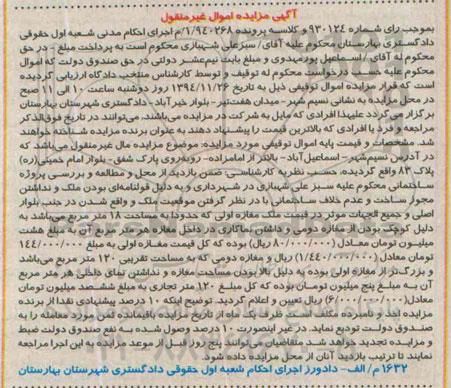 آگهی مزایده اموال غیرمنقول
بموجب رای شماره ۹۳۰۱۲۴ و کلاسه پرونده ۱/۹۴۰۲۶۸/م اجرای احکام مدنی شعبه اول حقوقی
دادگستری بهارستان محکوم علیه آقای/ سبزعلی شهبازی محکوم است به پرداخت مبلغ - در حق
محکوم له آقای / اسماعیل پورمهدوی و مبلغ بابت نیم‌عشر دولتی در حق صندوق دولت که اموال
محکوم علیه حسب درخواست محکوم له توقیف و توسط کارشناس منتخب دادگاه ارزیابی گردیده
است که قرار مزایده اموال توقیفی ذیل به تاریخ ۱۳۹۴/۱۱/۲۶ روز دوشنبه ساعت ۱۰ الی ۱۱ صبح
در محل مزایده به نشانی نسیم شهر- میدان هفت‌تیر- بلوار خیرآباد- دادگستری شهرستان بهارستان
برگزار می‌گردد علیهذا افرادی که مایل به شرکت در مزایده می‌باشند، می‌توانند در تاریخ فوق‌الذکر
مراجعه و فرد یا افرادی که بالاترین قیمت را پیشنهاد دهند به عنوان برنده مزایده شناخته خواهند
شد. مشخصات و قیمت پایه اموال توقیفی مورد مزایده: موضوع مزایده مال غیرمنقول می‌باشد که
در آدرس نسیم‌شهر- اسماعیل‌آباد- بالاتر از امامزاده- روبه‌روی پارک شفق- بلوار امام خمینی(ره)
پلاک ۸۳ واقع گردیده، حسب نظریه کارشناسی: ضمن بازدید از محل و مطالعه و بررسی پروژه
ساختمانی محکوم علیه سبز علی شهبازی در شهرداری و به دلیل قولنامه‌ای بودن ملک و نداشتن
مجوز ساخت و عدم خلاف ساختمانی با در نظر گرفتن موقعیت ملک و واقع شدن در جنب بلوار
اصلی و جمیع الجهات موثر در قیمت ملک مغازه اولی که حدودا به مساحت ۱۸ متر مربع می‌باشد به
دلیل کوچک بودن از مغازه دومی و داشتن نماکاری در داخل مغازه هر متر مربع آن به مبلغ هشت
میلیون تومان معادل (۸۰/۰۰۰/۰۰۰ ریال) بوده که کل قیمت مغازه اولی به مبلغ ۱۴۴/۰۰۰/۰۰۰
تومان معادل (۱/۴۴۰/۰۰۰/۰۰۰ ریال) و مغازه دومی که به مساحت تقریبی ۱۲۰ متر مربع می‌باشد
و بزرگ‌تر از مغازه اولی بوده به دلیل بالا بودن مساحت مغازه و نداشتن نمای داخلی هر متر مربع
آن به مبلغ پنج میلیون تومان بوده که کل مبلغ ۱۲۰ متر تجاری به مبلغ ششصد میلیون تومان
معادل(۶/۰۰۰/۰۰۰/۰۰۰) ریال تعیین و اعلام گردید. توضیح اینکه ۱۰ درصد پیشنهادی نقدا از برنده
مزایده اخذ و نامبرده مکلف است ظرف یک ماه از تاریخ مزایده باقیمانده ثمن مورد معامله را به
صندوق دولت تودیع نماید. در غیر اینصورت ۱۰ درصد وصول شده به نفع صندوق دولت ضبط
و مزایده تجدید خواهد شد متقاضیان می‌توانند پنج روز قبل از موعد مزایده به این اجرا مراجعه
نمایند تا ترتیب بازدید آنان از محل مزایده داده شود.
۱۶۳۲/م الف- دادورز اجرای احکام شعبه اول حقوقی دادگستری شهرستان بهارستان